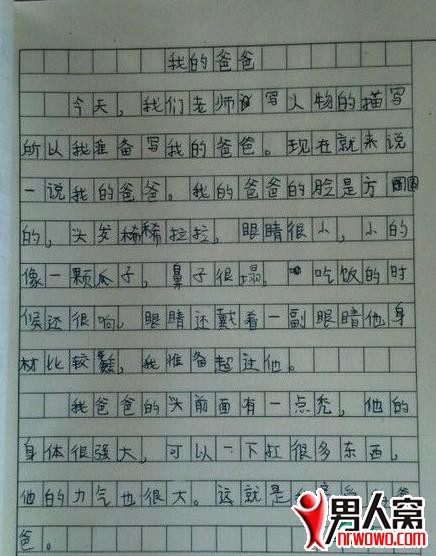 我的爸爸
今天,我们老师 写人物的描写
所以我准备写我的爸爸。现在就来说
一说我的爸爸。我的爸爸的脸是方
的,头发稀稀拉拉,眼睛很小,小的
像一颗瓜子,鼻子很塌, 吃饭的时
候还很响,眼睛还戴着一副眼睛他身
材比较 ,我准备超过他。
我爸爸的头前面有一点秃,他的
身体很强大,可以一下扛很多东西,
他的力气也很大。这就是 爸
爸。
男人窝
nrwowo.com